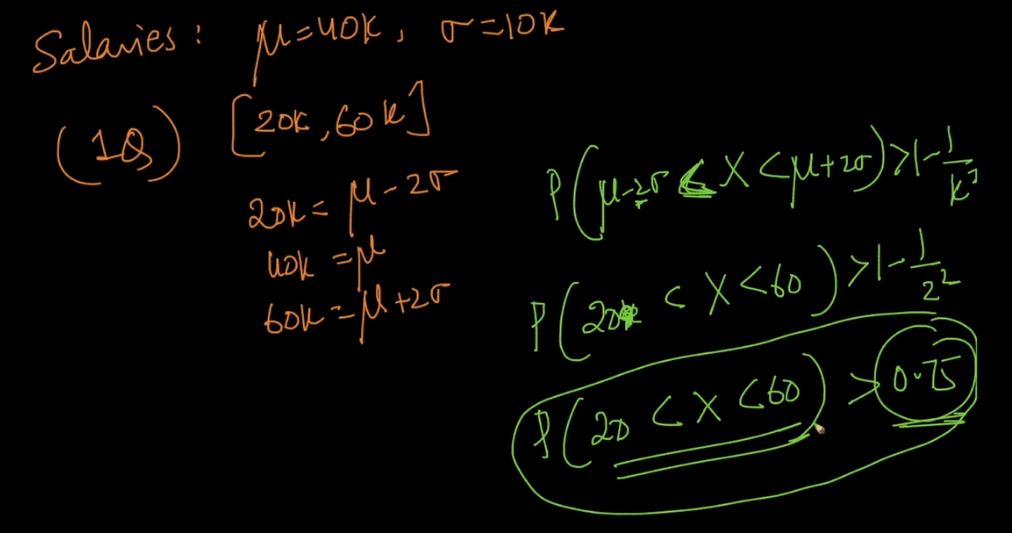 Salaries: μ=40k, σ=10k
(1Q) [20k, 60k]
20k = μ-2σ
40k = μ
60k = μ+2σ
P(μ-2σ < X < μ+2σ) > 1-1/k²
P(20k < X < 60) > 1-1/2²
P(20 < X < 60) > 0.75